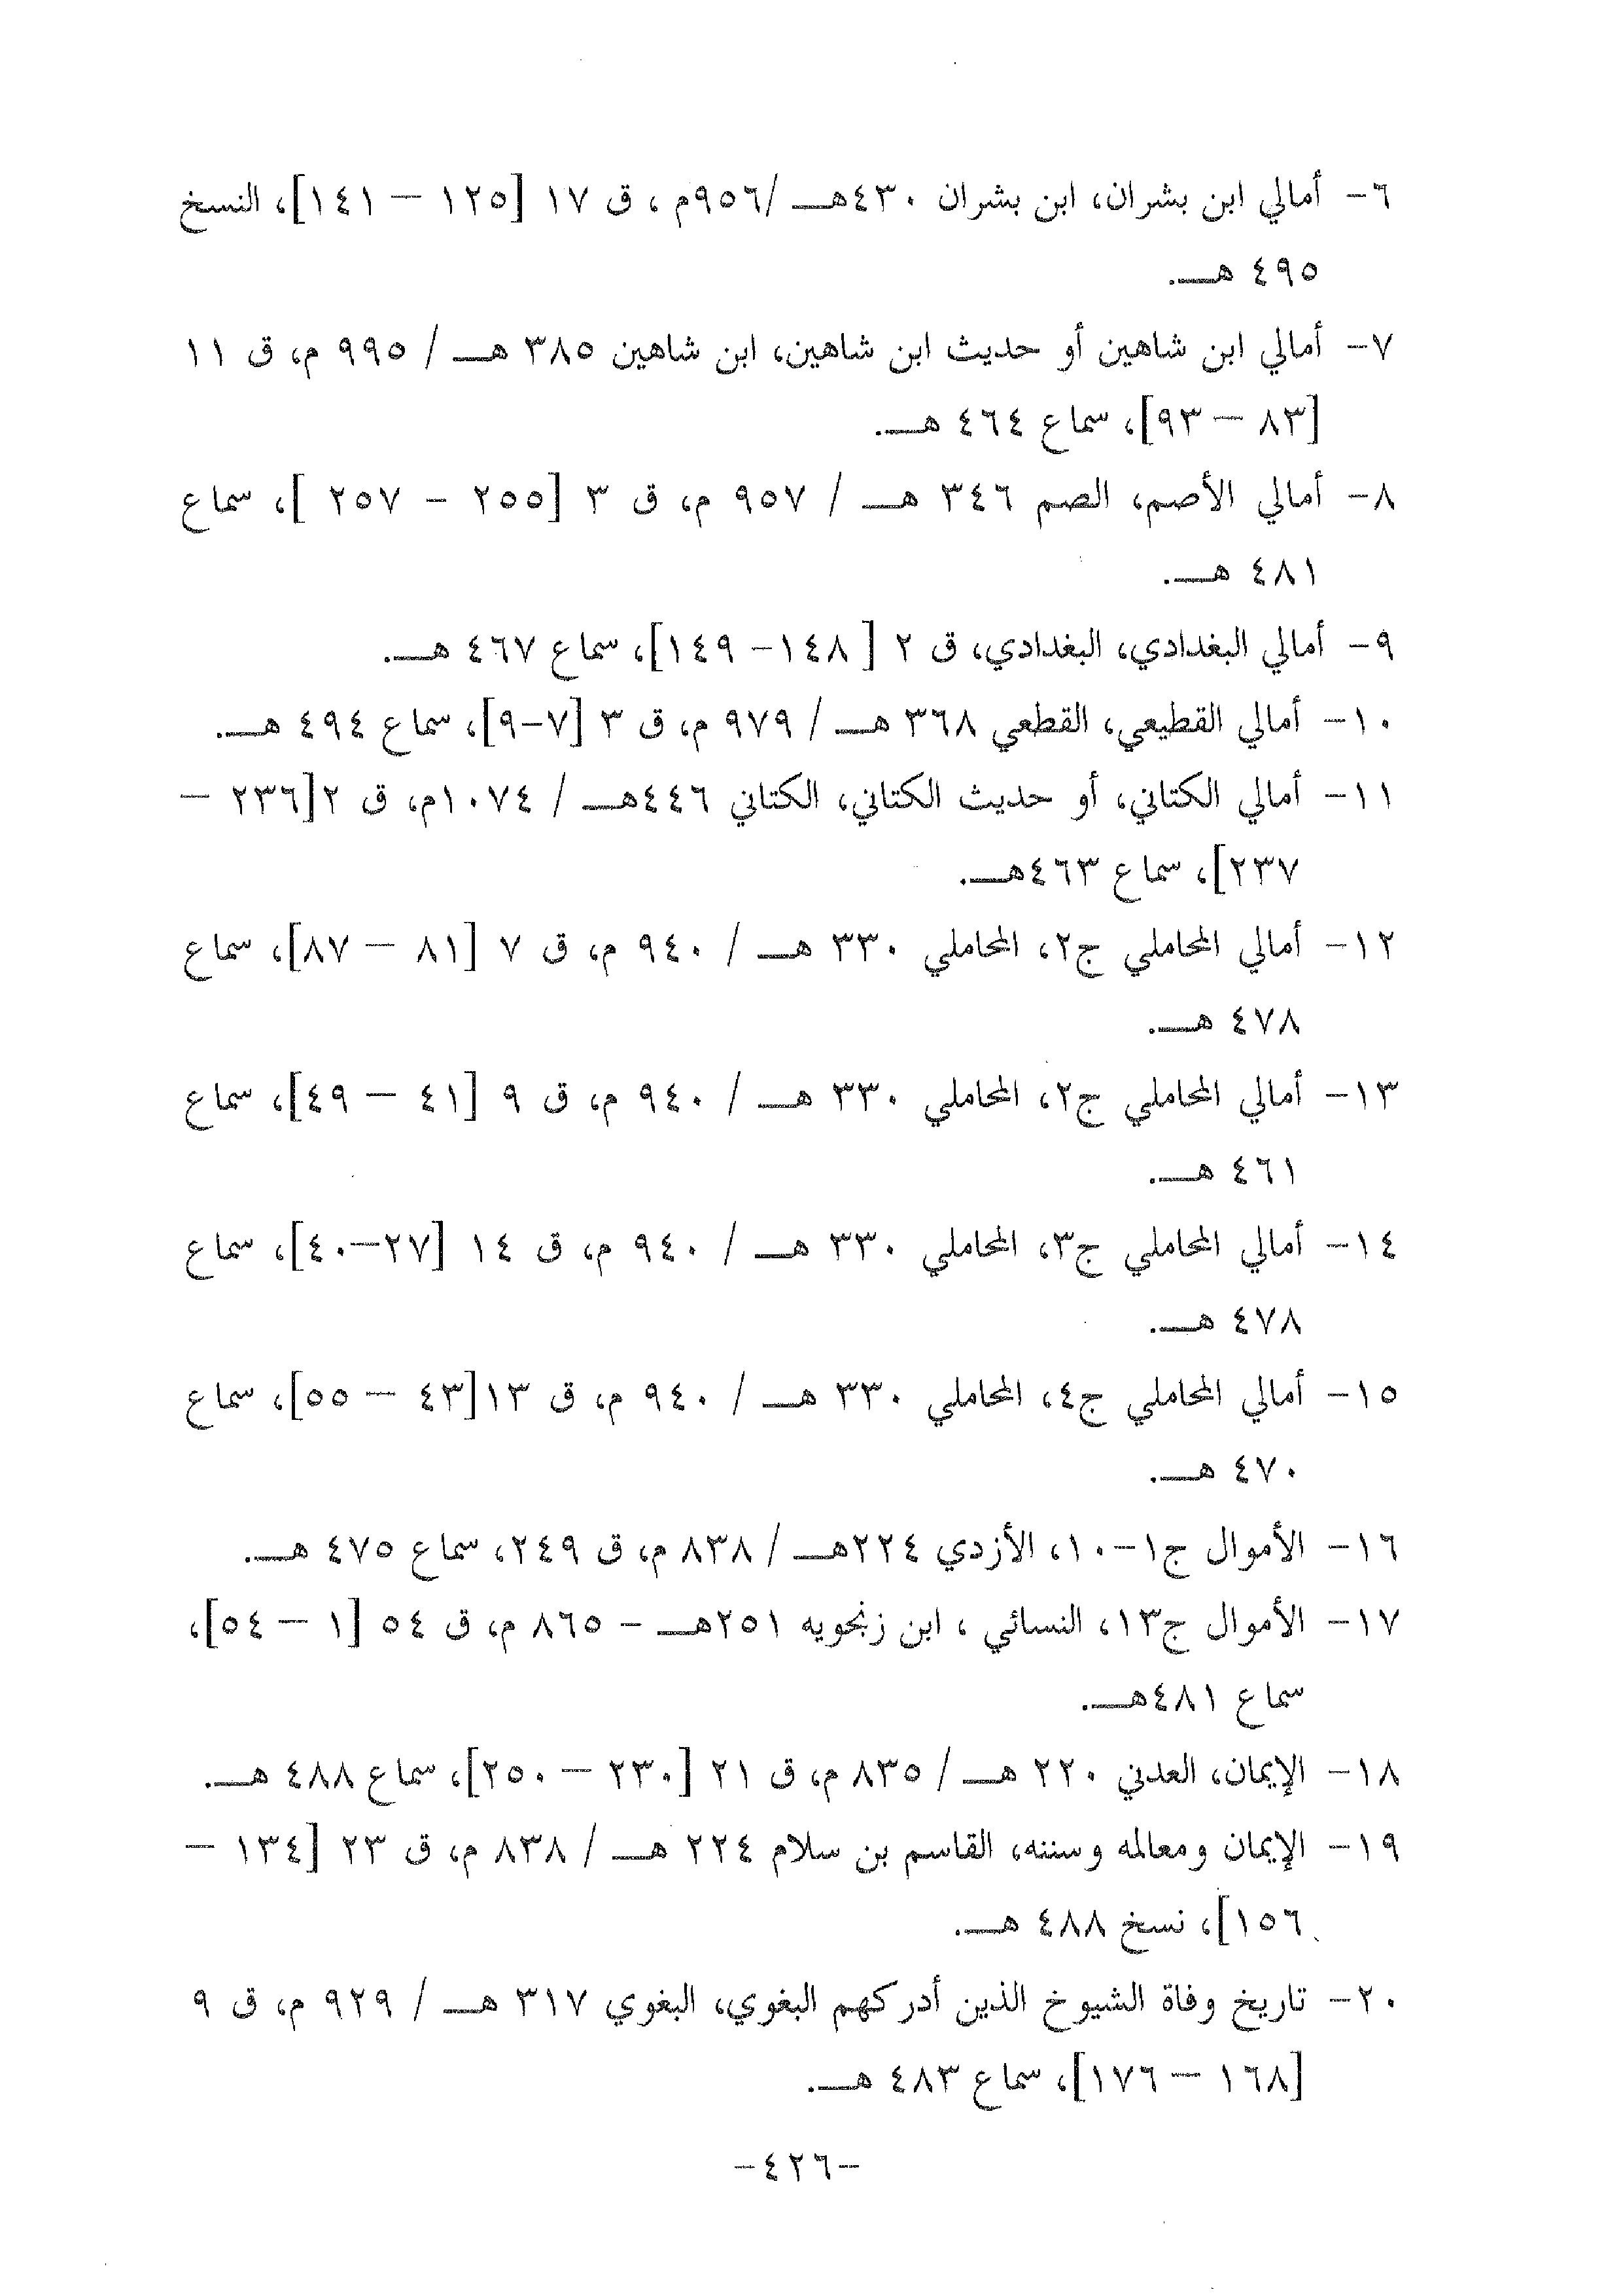 ٦- أمالي ابن بشران، ابن بشران ٤٣٠هـ /٩٥٦م ، ق ١٧ [١٢٥ – ١٤١]، النسخ
٤٩٥ هـ.
٧- أمالي ابن شاهين أو حديث ابن شاهين، ابن شاهين ٣٨٥ هـ / ٩٩٥ م، ق ١١
[٨٣ – ٩٣]، سماع ٤٦٤ هـ.
٨- أمالي الأصم، الصم ٣٤٦ هـ / ٩٥٧ م، ق ٣ [٢٥٥ – ٢٥٧ ]، سماع
٤٨١ هـ.
٩- أمالي البغدادي، البغدادي، ق ٢ [ ١٤٨– ١٤٩]، سماع ٤٦٧ هـ.
١٠- أمالي القطيعي، القطعي ٣٦٨ هـ / ٩٧٩ م، ق ٣ [٧-٩]، سماع ٤٩٤ هـ.
١١- أمالي الكتاني، أو حديث الكتاني، الكتاني ٤٤٦هـ / ١٠٧٤م، ق ٢[٢٣٦ –
٢٣٧]، سماع ٤٦٣هـ.
١٢- أمالي المحاملي ج٢، المحاملي ٣٣٠ هـ / ٩٤٠ م، ق ٧ [٨١ – ٨٧]، سماع
٤٧٨ هـ.
١٣- أمالي المحاملي ج٢، المحاملي ٣٣٠ هـ / ٩٤٠ م، ق ٩ [٤١ – ٤٩]، سماع
٤٦١ هـ.
١٤- أمالي المحاملي ج٣، المحاملي ٣٣٠ هـ / ٩٤٠ م، ق ١٤ [٢٧–٤٠]، سماع
٤٧٨ هـ.
١٥- أمالي المحاملي ج٤، المحاملي ٣٣٠ هـ / ٩٤٠ م، ق ١٣[٤٣ – ٥٥]، سماع
٤٧٠ هـ.
١٦- الأموال ج١-١٠، الأزدي ٢٢٤هـ / ٨٣٨ م، ق ٢٤٩، سماع ٤٧٥ هـ.
١٧- الأموال ج١٣، النسائي ، ابن زنجويه ٢٥١هـ – ٨٦٥ م، ق ٥٤ [١ – ٥٤]،
سماع ٤٨١هـ.
١٨- الإيمان، العدني ٢٢٠ هـ / ٨٣٥ م، ق ٢١ [٢٣٠ – ٢٥٠]، سماع ٤٨٨ هـ.
١٩- الإيمان ومعالمه وسننه، القاسم بن سلام ٢٢٤ هـ / ٨٣٨ م، ق ٢٣ [١٣٤ –
١٥٦]، نسخ ٤٨٨ هـ.
٢٠- تاريخ وفاة الشيوخ الذين أدركهم البغوي، البغوي ٣١٧ هـ / ٩٢٩ م، ق ٩
[١٦٨ – ١٧٦]، سماع ٤٨٣ هـ.
-٤٢٦-